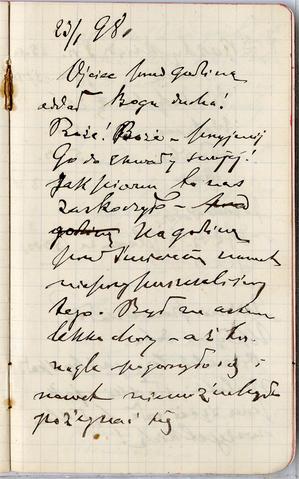 23/1 98.
Ojciec przed godziną
oddał Bogu ducha!
Boże! Boże – przyjmij
Go do chwały swojej!
Jak piorun to nas
zaskoczyło –
godziną Na godzinę
przed śmiercią nawet
nie przypuszczaliśmy
tego. Był na
lekko chory – a tu
nagle pogorszyło się i
nawet nie można było
pożegnać się